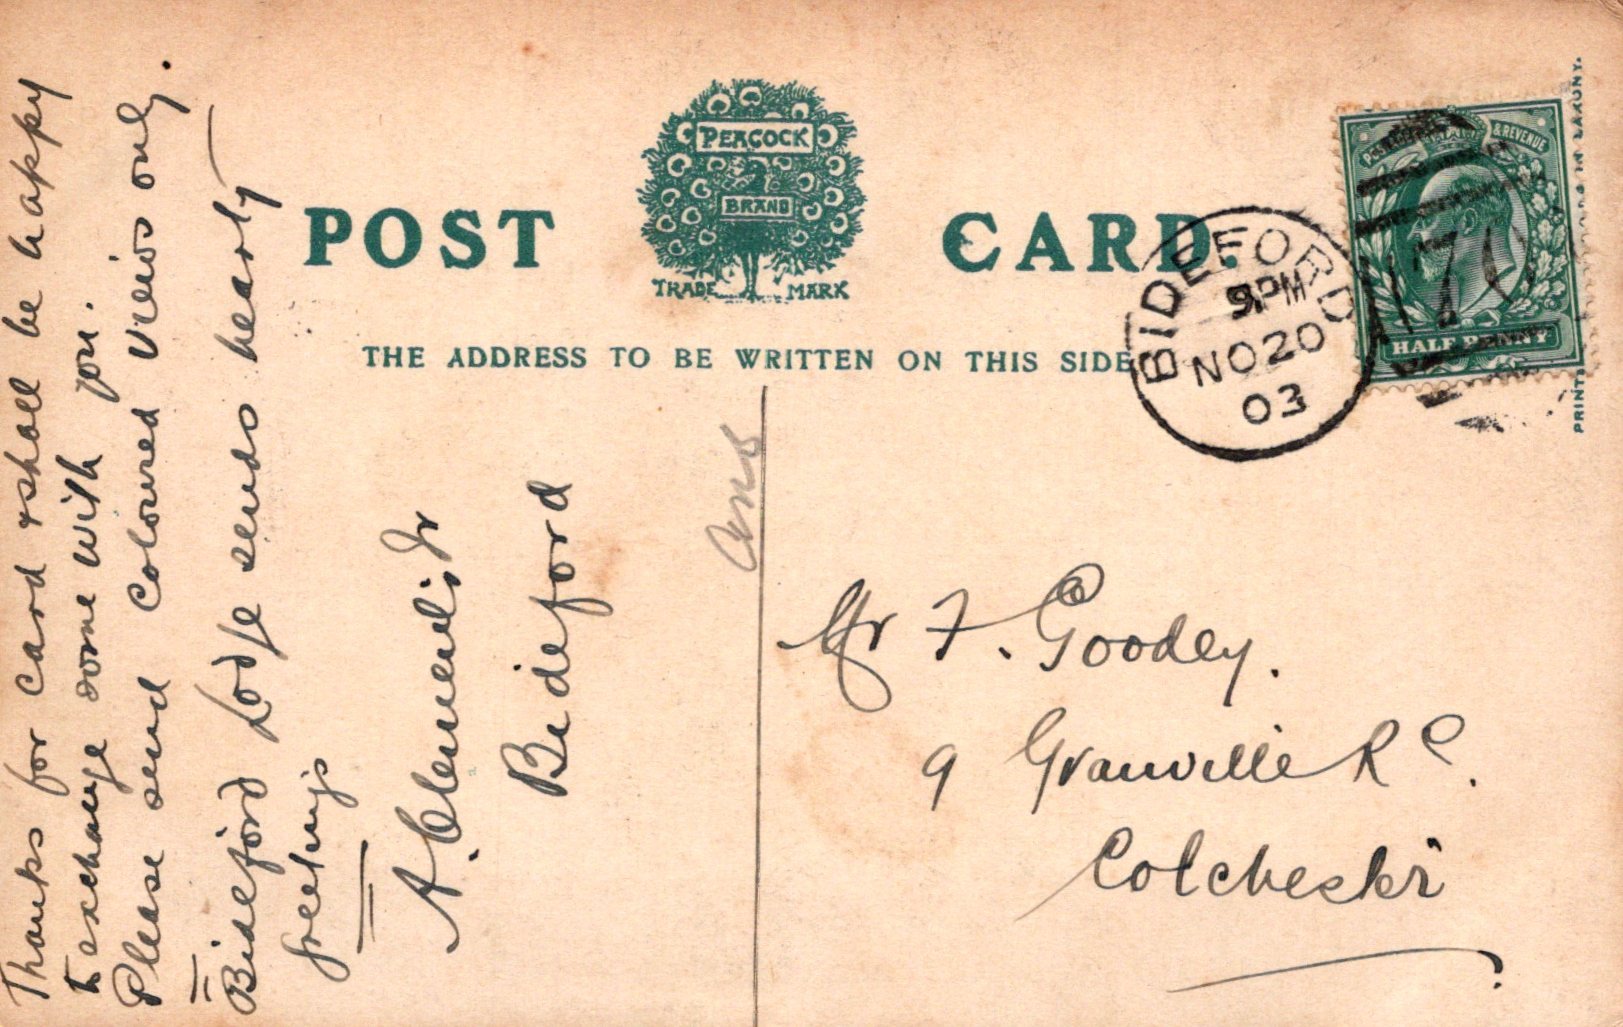 POST CARD.
PEACOCK
BRAND
TRADE MARK
THE ADDRESS TO BE WRITTEN ON THIS SIDE
POSTAGE & REVENUE
HALF PENNY
BIDEFORD
PM
NO 20
03
Thanks for card & shall be happy
to exchange some with you.
Please send coloured views only.
Bideford Lodge sends hearty
greetings
A. Clements Jr
Bideford
ans
Mr F. Goodey.
9 Granville Rd.
Colchester